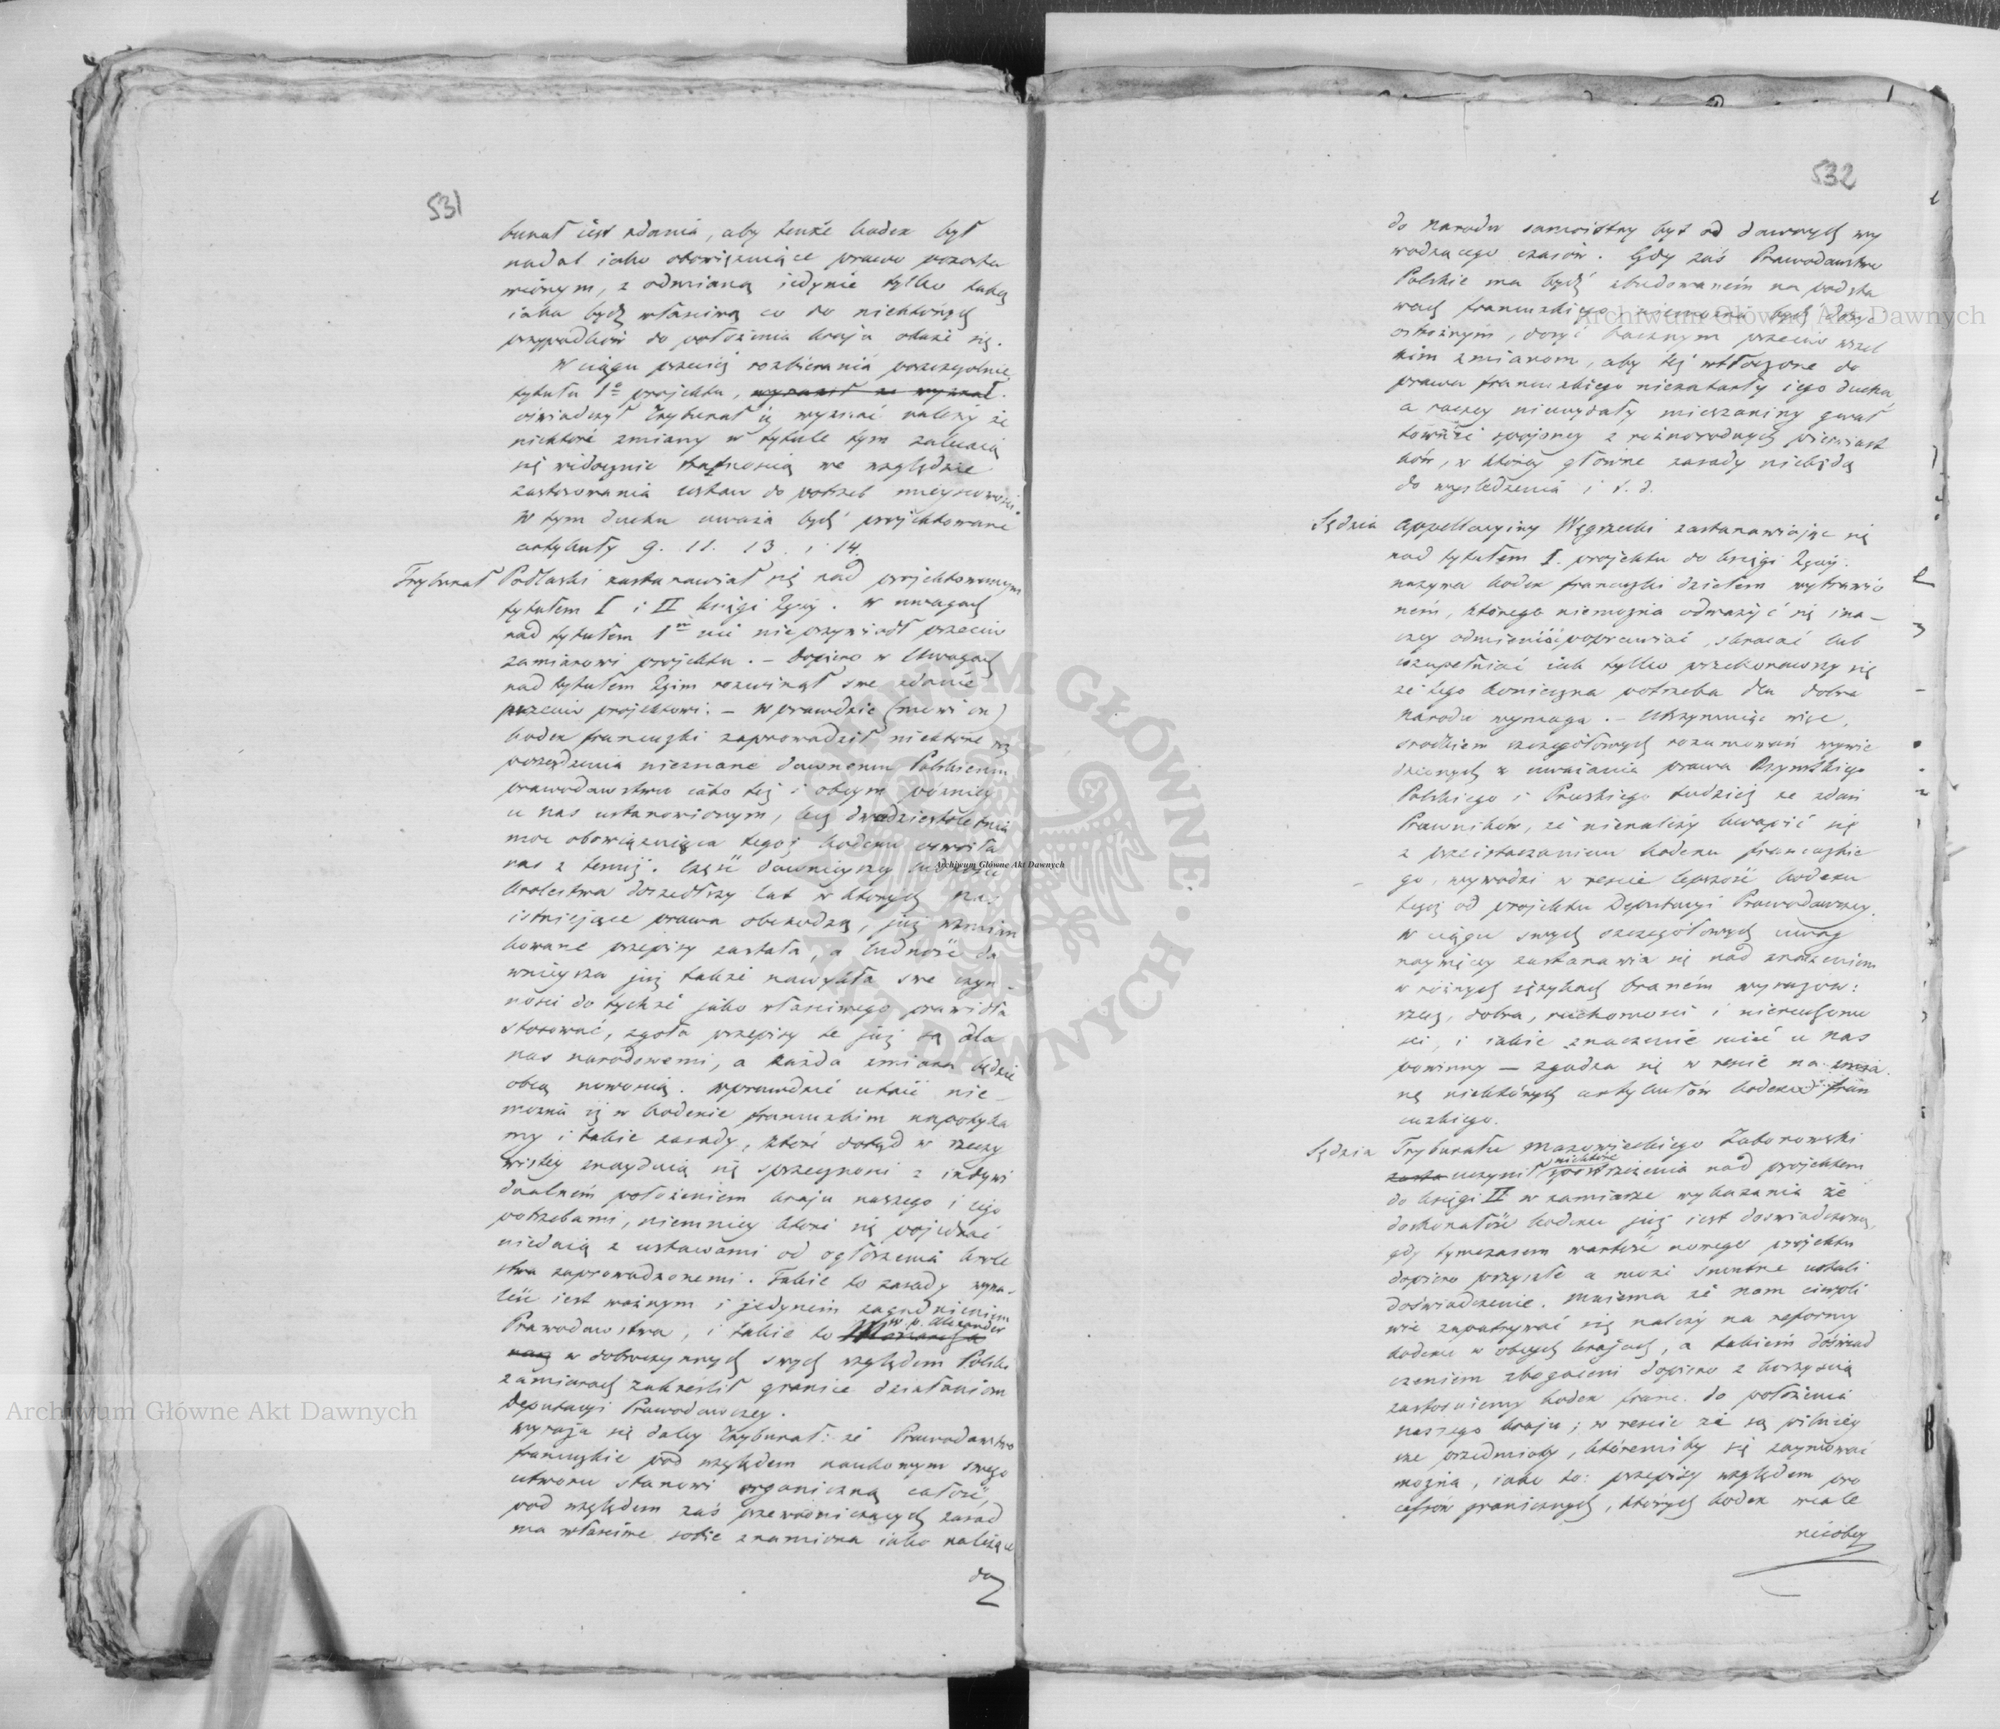 531
bunał iest zdania, aby tenże kodex był
nadal iako obowięzuiące prawo pozosta
wionym, z odmianą iedynie tylko taką
iaka bydź właściwą co do niektórych
przypadków do położenia kraju okaże się.
W ciągu przecież rozbierania poszczególnie
tytułu 1º projektu, wyraził że wyznał
oświadczył Trybunał iż wyznać należy że
niektóre zmiany w tytule tym zalecaią
się widocznie trafnością we względzie
zastosowania ustaw do potrzeb mieyscowości.
W tym duchu uważa bydź projektowane
artykuły 9. 11. 13. i 14.
Trybunał Podlaski zastanawiał się nad projektowanym
tytułem I i II księgi 2giej. W uwagach
nad tytułem 1m nic nieprzywiódł przeciw
zamiarowi projektu. – Dopiero w Uwagach
nad tytułem 2gim rozwinął swe zdanie
przeciw projektowi. – W prawdzie (mówi on)
kodex francuzki zaprowadził niektóre u
porządzenia nieznane dawnemu Polskiemu
prawodawstwu iako też i obcym pózniey
u nas ustanowionym, lecz dwudziestoletnia
moc obowięzuiąca tegoż kodexu oswoiła
nas z temiż. Część dawnieyszey ludności
królestwa doszedłszy lat w których nas
istniejące prawa obchodzą, już wzmian
kowane przepisy zastała, a ludność da
wnieysza już także nawykła swe czyn-
ności do tychże jako właściwego prawidła
stosować, zgoła przepisy te już są dla
nas narodowemi, a każda zmiana będzie
obcą nowością. Wprawdzie utaić nie-
można iż w kodexie francuzkim napotyka
my i takie zasady, które dotąd w rzeczy
wistey znayduią się sprzecznemi z indywi
dualném położeniem kraju naszego i jego
potrzebami, niemniey które się pojednać
niedaią z ustawami od ogłoszenia króle
stwa zaprowadzonemi. Takie to zasady wyna-
leść iest ważnym i jedyném zagadnieniem
Prawodawstwa, i takie to w p. Alexander
Monarcha
nasz w dobroczynnych swych względem Polski
zamiarach zakreślił granice działaniom
Deputacyi Prawodawczey.
Wyraża się daley Trybunał: że Prawodawstwo
francuzkie pod względem naukowym swego
utworu stanowi organiczną całość,
pod względem zaś przewodniczących zasad
ma właściwe sobie znamiona iako należące
do
532
do narodu samoistny byt od dawnych wy
wodzącego czasów. Gdy zaś Prawodawstwo
Polskie ma bydź zbudowaném na podsta
wach francuzkiego niemożna bydź dosyć
ostrożnym, dosyć bacznym przeciw wszel
kim zmianom, aby też wtłoczone do
prawa francuzkiego niezatarły iego ducha
a raczey nieuydały mieszaniny gwał
townie spojoney z różnorodnych pierwiast
ków, w którey główne zasady niebędą
do wyśledzenia i t. d.
Sędzia Appellacyiny Węgrzecki zastanawiając się
nad tytułem I. projektu do księgi 2giej.
nazywa kodex francuzki dziełem wytrawio
ném, którego niemożna odważyć się ina-
czey odmienić, poprawiać, skracać lub
uzupełniać iak tylko przekonawszy się
że tego konieczna potrzeba dla dobra
narodu wymaga. – Utrzymuiąc więc,
środkiem szczegółowych rozumowań wywie
dzionych z uważania prawa Rzymskiego
Polskiego i Pruskiego tudzież ze zdań
Prawników, że nienależy kwapić się
z przeistaczaniem kodexu francuzkie
go, wywodzi w reście lepszość kodexu
tego od projektu Deputacyi Prawodawczey.
W ciągu swych szczegółowych uwag
naywięcey zastanawia się nad znaczeniem
w różnych językach braném wyrazów:
rzecz, dobra, ruchomości i nieruchomo
ści, i iakie znaczenie mieć u nas
powinny – zgadza się w reście na zmia
nę niektórych artykułów kodexu fran
cuzkiego.
Sędzia Trybunału Mazowieckiego Zaborowski
zasta uczynił niektóre spostrzeżenia nad projektem
do księgi II w zamiarze wykazania że
doskonałość kodexu już iest doświadczona,
gdy tymczasem wartość nowego projektu
dopiero przyszłe a może smutne ustali
doświadczenie. Mniema że nam cierpli
wie zapatrywać się należy na reformy
kodexu w obcych krajach, a takiem doświad
czeniem zbogaceni dopiero z korzyścią
zastosuiemy kodex franc. do położenia
naszego kraju; w reście że są pilniey
sze przedmioty, któremiby się zaymować
można, iako to: przepisy względem pro
cessów granicznych, których kodex wcale
nieobey